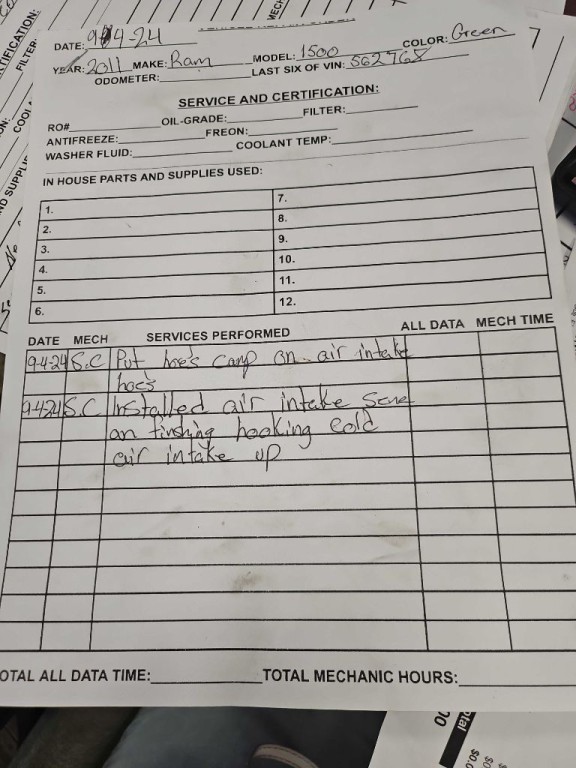 DATE: 9-4-24
YEAR: 2011 MAKE: Ram MODEL: 1500 COLOR: Green
ODOMETER: LAST SIX OF VIN: 562768
SERVICE AND CERTIFICATION:
RO# OIL-GRADE: FILTER:
ANTIFREEZE: FREON:
WASHER FLUID: COOLANT TEMP:
IN HOUSE PARTS AND SUPPLIES USED:
1. 7.
2. 8.
3. 9.
4. 10.
5. 11.
6. 12.
DATE MECH SERVICES PERFORMED ALL DATA MECH TIME
9-4-24 S.C Put hoe's camp on air intake
hoes
9-4-24 S.C Installed air intake
an finshing hooking cold
air intake up
OTAL ALL DATA TIME: TOTAL MECHANIC HOURS: